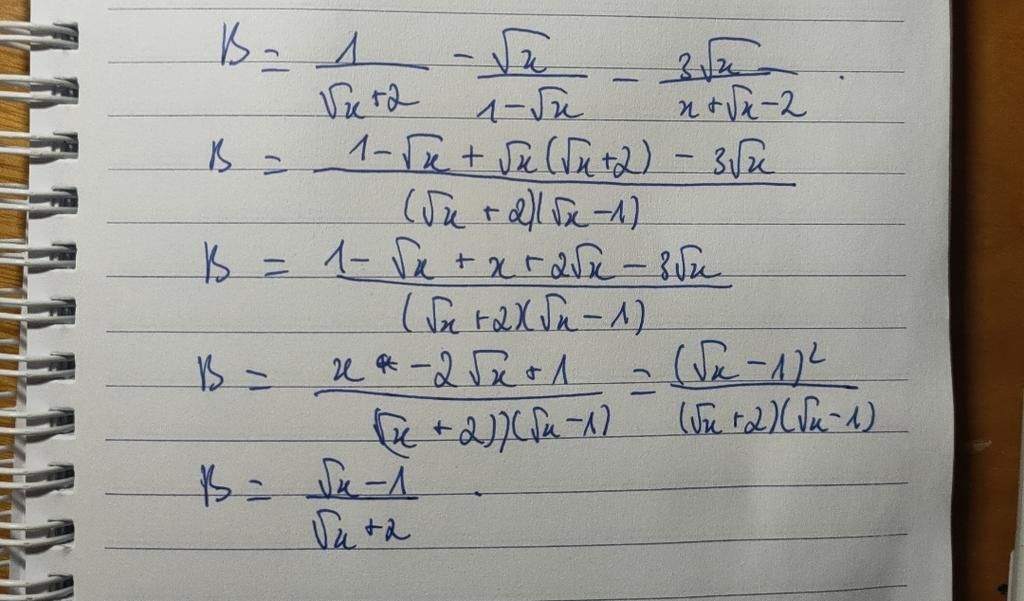 B = 1/(√x+2) - √x/(1-√x) - 3√x/(x+√x-2) .
B = (1-√x + √x(√x+2) - 3√x)/((√x +2)(√x-1))
B = (1- √x + x + 2√x - 3√x)/((√x +2)(√x -1))
B = (x -2√x+1)/((√x +2))(√x-1)) = (√x -1)²/((√x+2)(√x-1))
B = (√x-1)/(√x+2) .